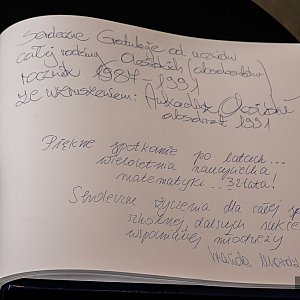 Serdeczne Gratulacje od uczniów
całej rodziny (absolwentów)
rocznik 1987-1991
ze wzruszeniem: Arkadiusz
absolwent 1991
Piękne spotkanie po latach...
wieloletnia nauczycielka
matematyki.. 32 lata!
Serdeczne życzenia dla całej
szkolnej, dalszych
wspaniałej młodzieży